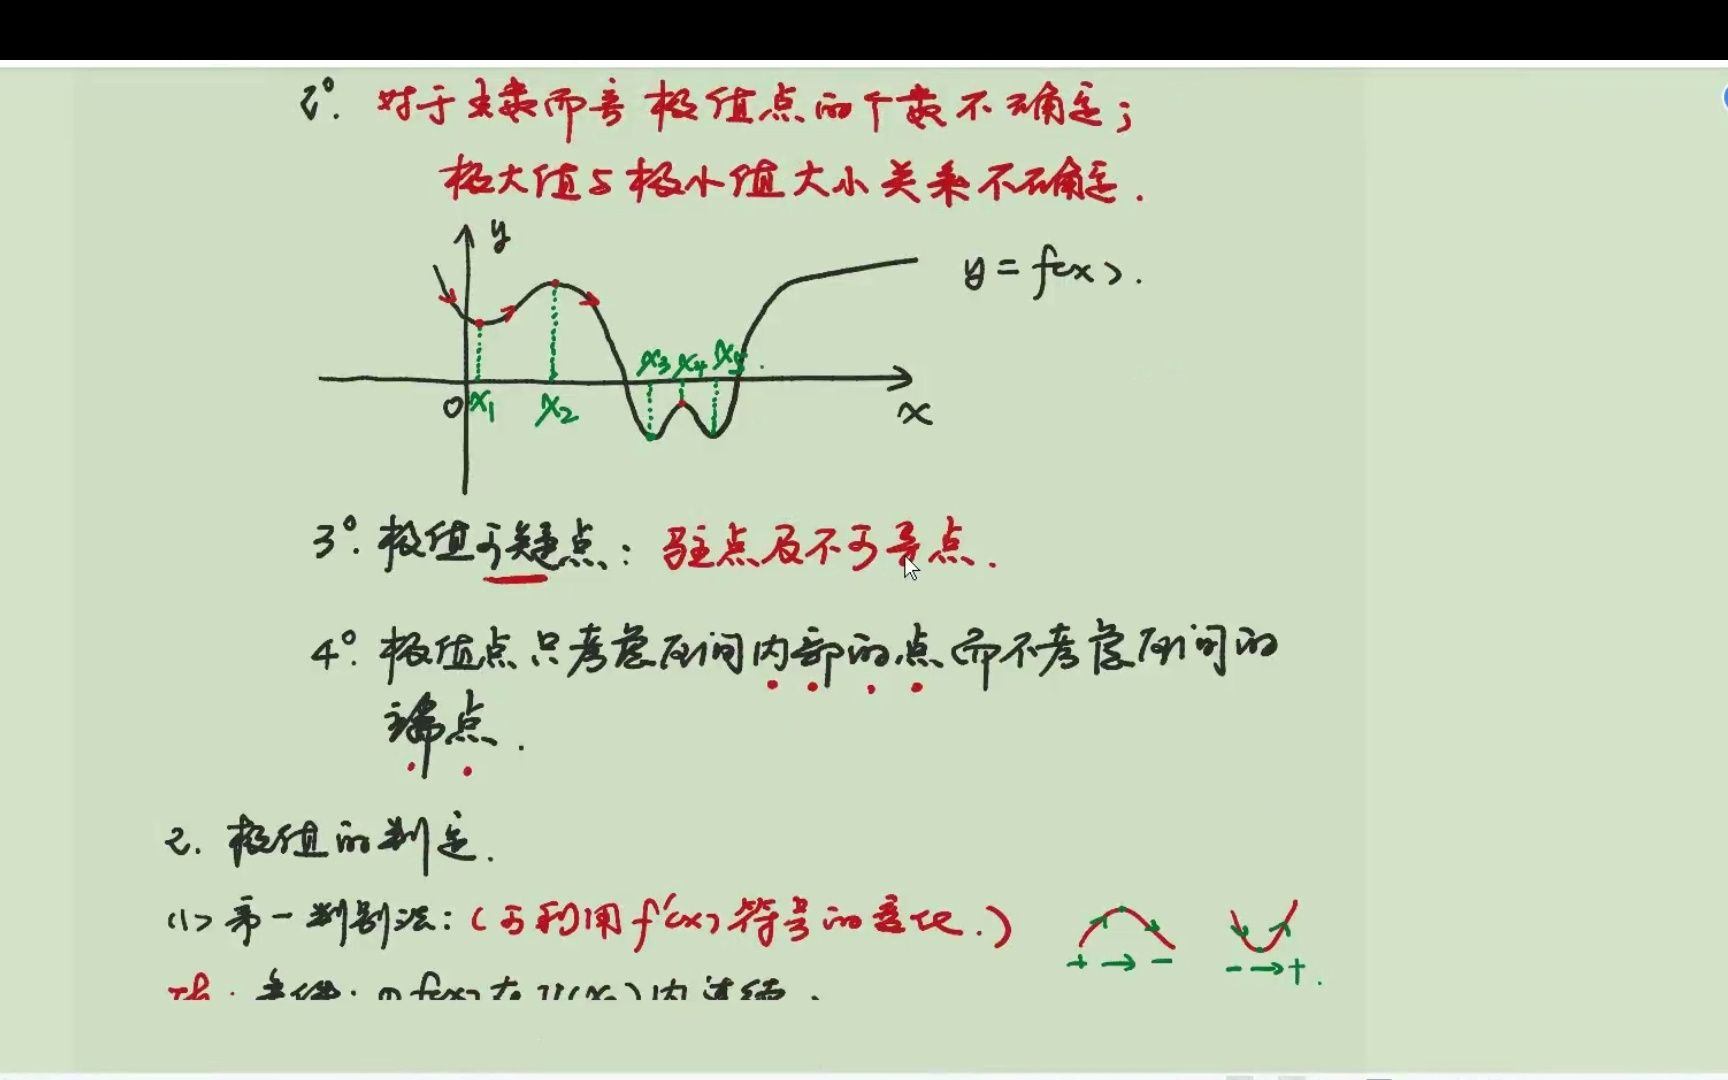 2°. 对于函数而言 极值点的个数不确定;
极大值与极小值大小关系不确定.
y
y = f(x).
x3 x4 x5
0 x1 x2 x
3°. 极值可疑点: 驻点及不可导点.
4°. 极值点只考虑区间内部的点而不考虑区间的
端点.
2. 极值的判定.
(1) 第一判别法: (可利用f'(x)符号的变化.)
+ → - - → +.